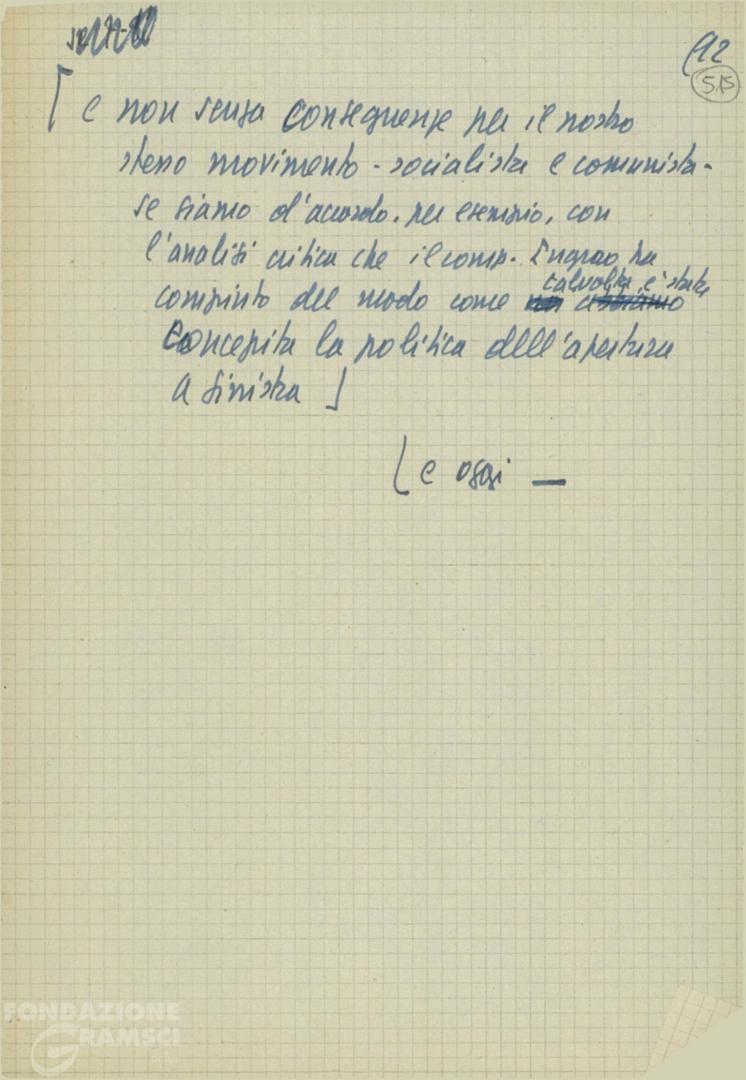 (92
515
[ e non senza conseguenze per il nostro
stesso movimento - socialista e comunista -
se siamo d'accordo, per esempio, con
l'analisi critica che il comp. Ingrao ha
talvolta è stata
compiuto del modo come non abbiamo
concepita la politica dell'apertura
a sinistra ]
[ e oggi —
FONDAZIONE
GRAMSCI